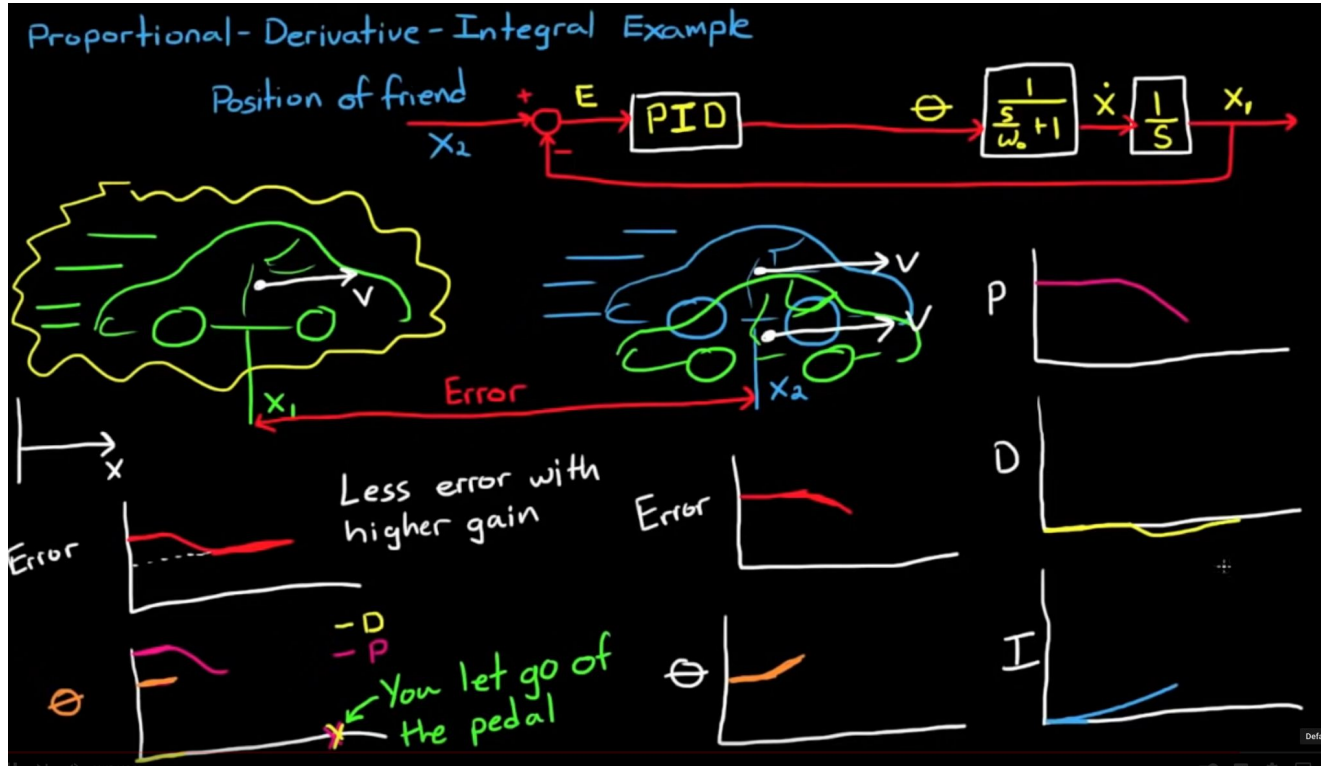 Proportional-Derivative-Integral Example
Position of friend
X₂
+
E
−
PID
θ
1
s/ω₀ +1
ẋ
1
S
X₁
V
V
V
Error
X₁
X₂
X
P
D
I
Less error with
higher gain
Error
Error
D
P
θ
θ
You let go of
the pedal
Defa